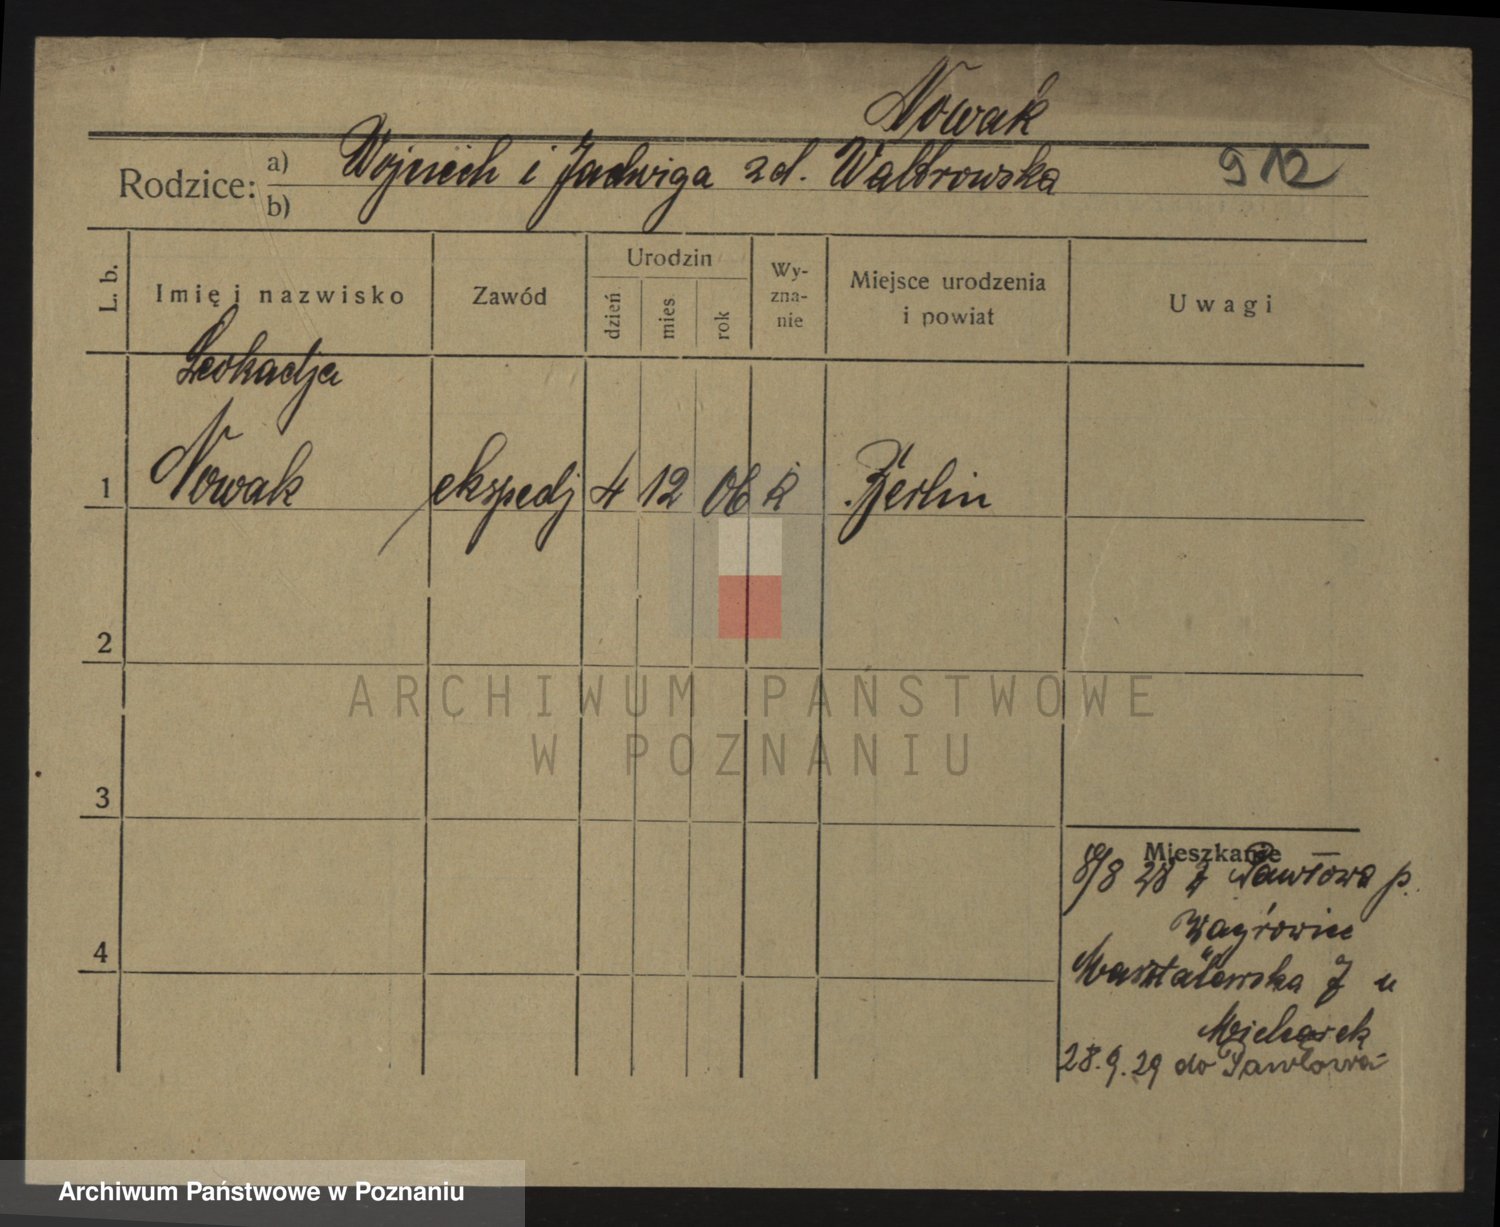 Nowak
Rodzice: a) Wojciech i Jadwiga zd. Walbrowska 912
b)
L. b. Imię i nazwisko Zawód Urodzin dzień mies rok Wy-zna-nie Miejsce urodzenia i powiat Uwagi
Leokadja
1 Nowak ekspedj 4 12 06 k Berlin
2
3
4
Mieszkanie
8/8 28 z Pawłowa p.
Wągrowiec
Masztalarska 7 u
Michąrek
28.9.29 do Pawłowa
ARCHIWUM PAŃSTWOWE
W POZNANIU
Archiwum Państwowe w Poznaniu